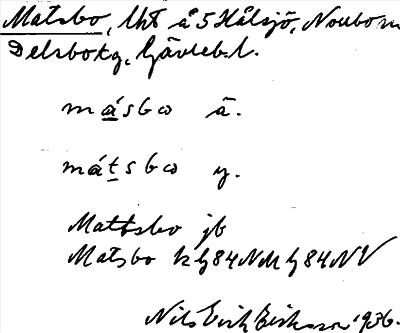 Matsbo, lht å S Hålsjö, Norrbom
Delsbo tg, Gävleb. l.
másbω ä.
mátsbω y.
Mattsbo jb
Matsbo k G84NM G84NV
Nils Erik Eriksson 1936.